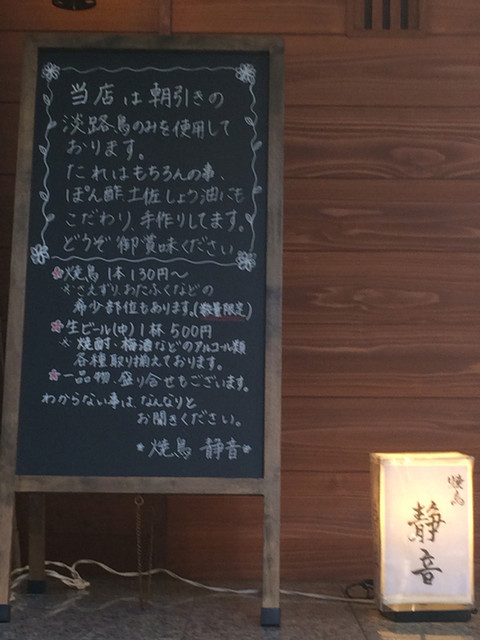 当店は朝引きの
淡路鳥のみを使用して
おります。
たれはもちろんの事、
ぽん酢、土佐しょう油にも
こだわり、手作りしてます。
どうぞ御賞味ください
焼鳥 1本130円〜
※さえずり、おたふくなどの
希少部位もあります。(数量限定)
生ビール(中) 1杯 500円
※焼酎・梅酒などのアルコール類
各種取り揃えております。
一品物、盛り合せもございます。
わからない事は、なんなりと
お聞きください。
焼鳥 静音
焼鳥
静音